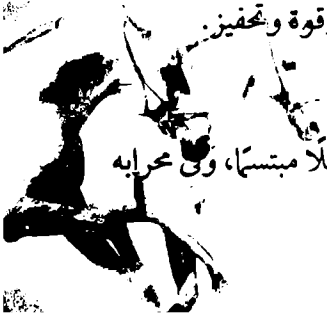 قوة وتحفيز.
مبتسمًا، وفي محرابه